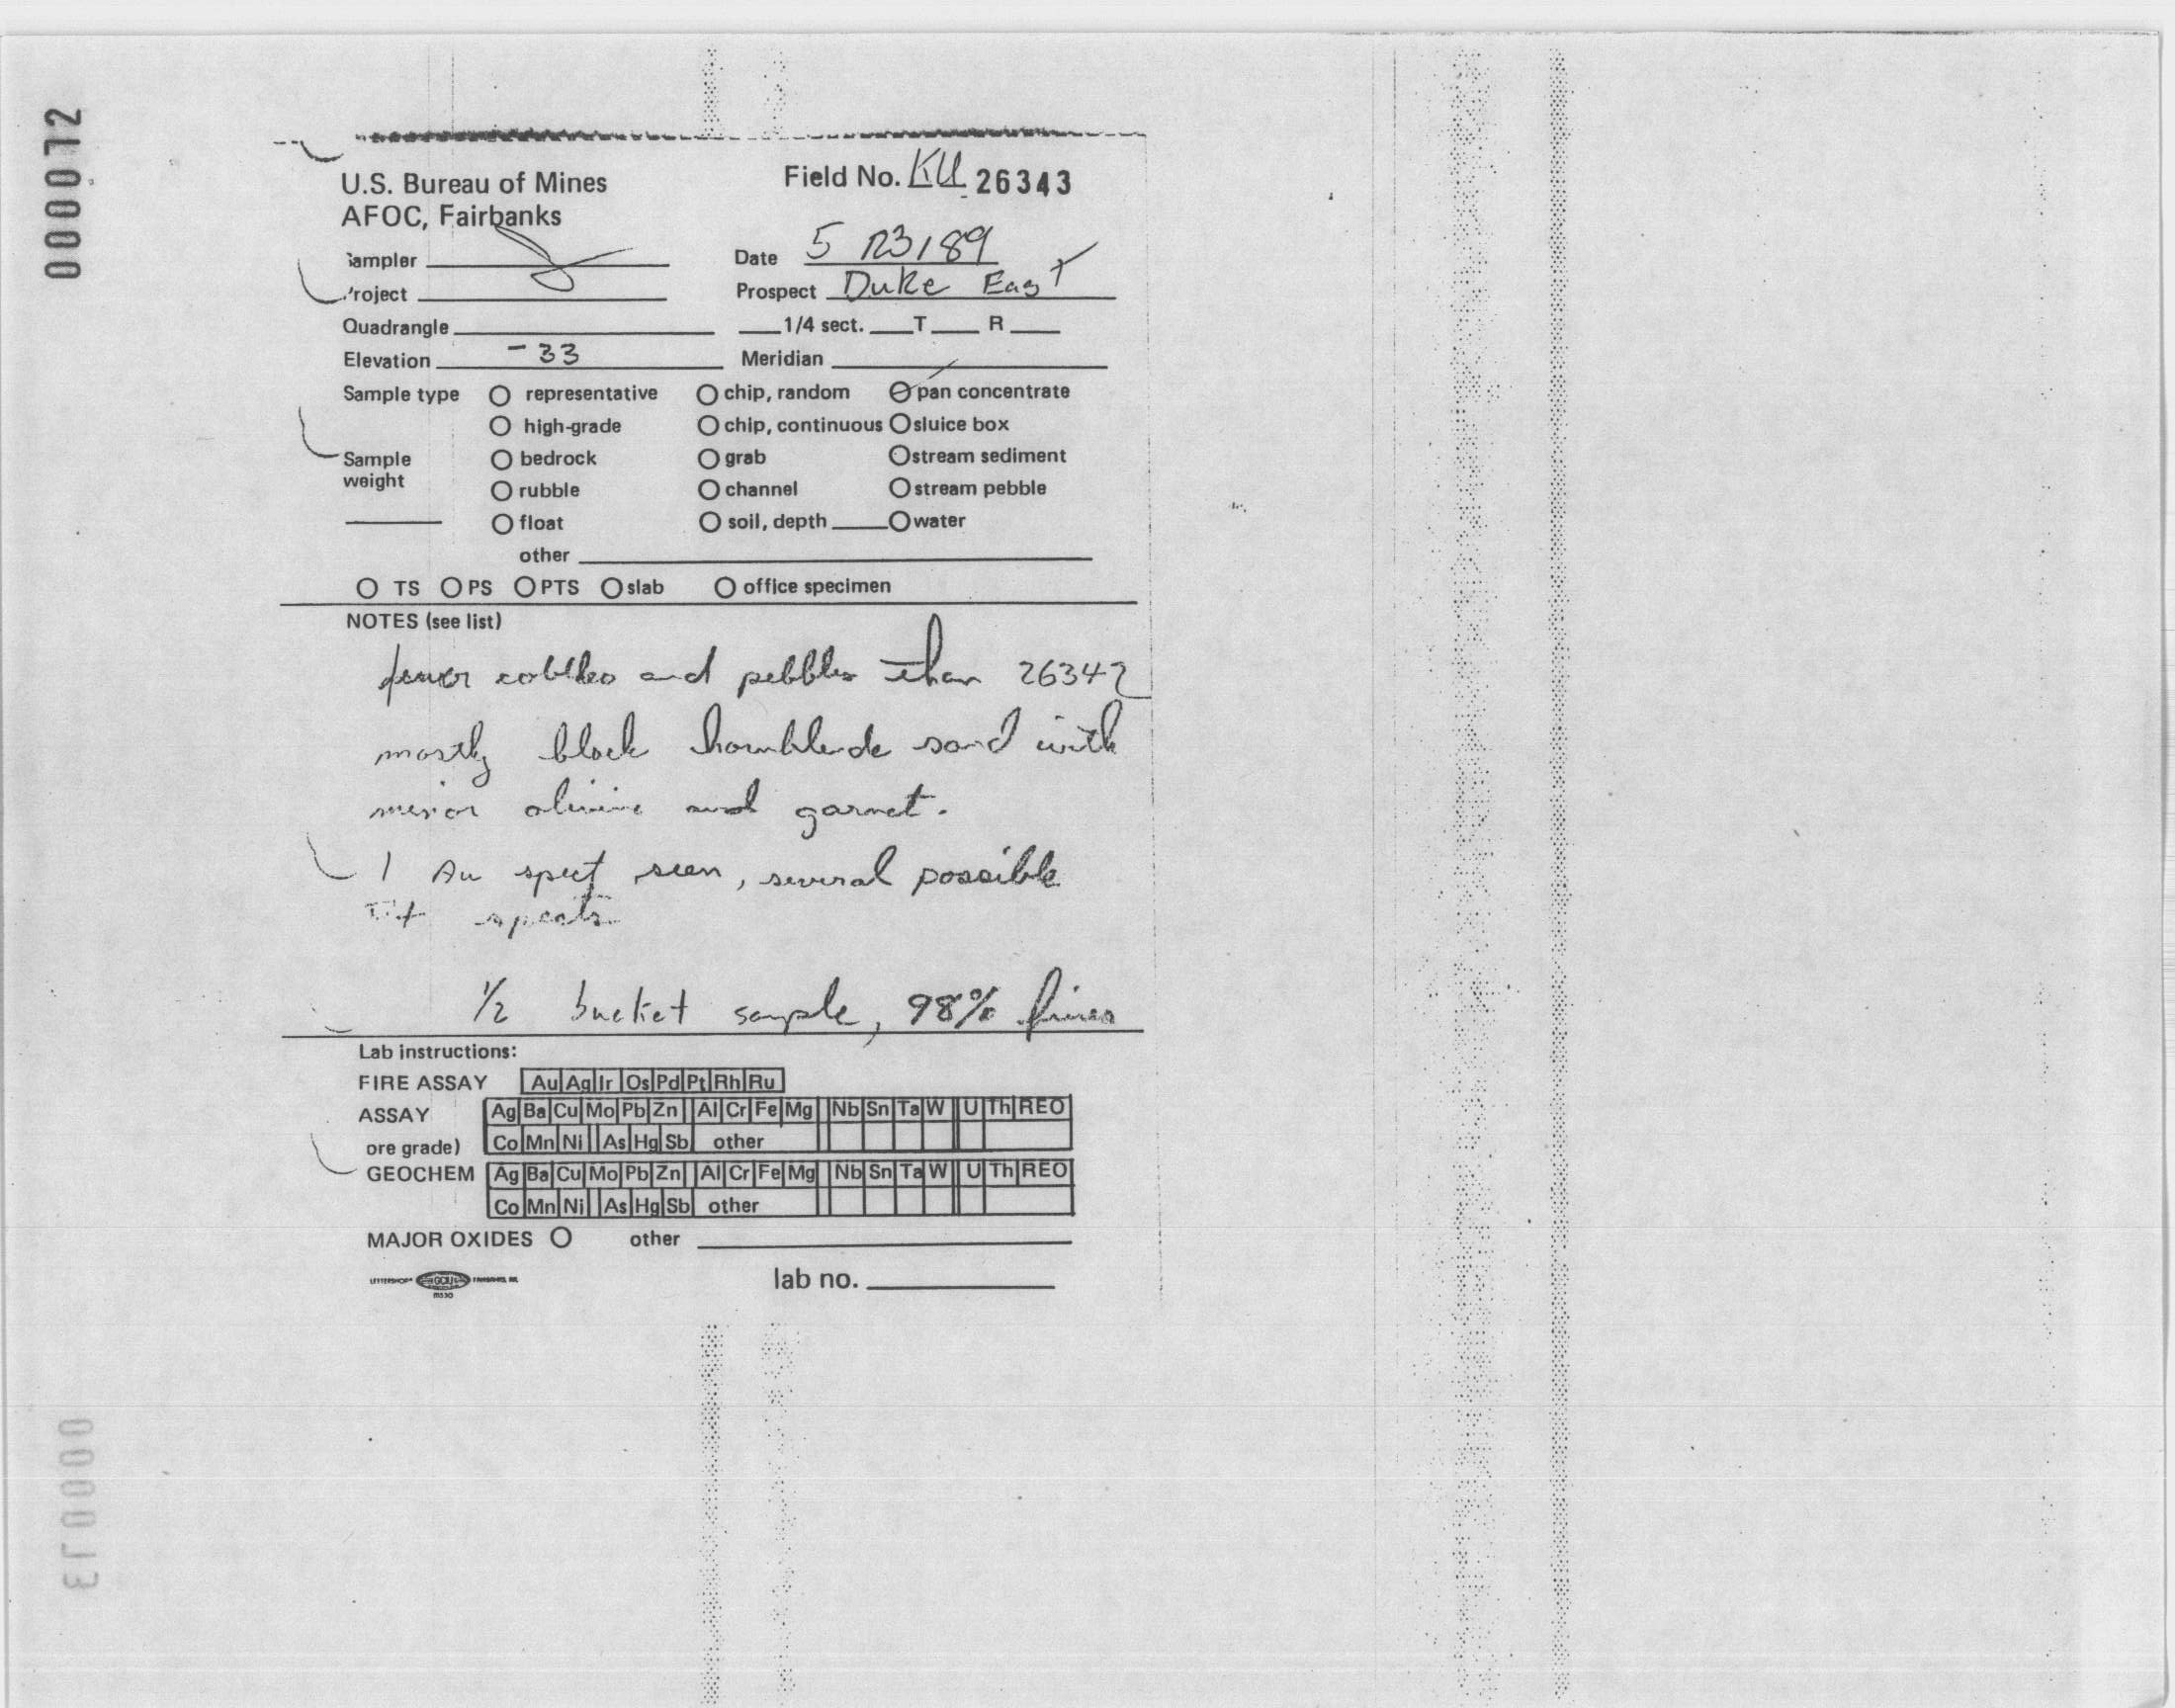 000012
U.S. Bureau of Mines
AFOC, Fairbanks
Field No. KU 26343
Sampler
Date 5 /23/89
Project
Prospect Duke East
Quadrangle
1/4 sect. T R
Elevation -33
Meridian
Sample type representative chip, random pan concentrate
high-grade chip, continuous sluice box
Sample weight
bedrock grab stream sediment
rubble channel stream pebble
float soil, depth water
other
TS PS PTS slab office specimen
NOTES (see list)
fewer cobbles and pebbles than 26342
mostly black hornblende sand with
minor olivine and garnet.
1 Au spect seen, several possible
spects
1/2 bucket sample, 98% fines
Lab instructions:
FIRE ASSAY Au Ag Ir Os Pd Pt Rh Ru
ASSAY Ag Ba Cu Mo Pb Zn Al Cr Fe Mg Nb Sn Ta W U Th REO
ore grade) Co Mn Ni As Hg Sb other
GEOCHEM Ag Ba Cu Mo Pb Zn Al Cr Fe Mg Nb Sn Ta W U Th REO
Co Mn Ni As Hg Sb other
MAJOR OXIDES other
GCIU
lab no.
000013